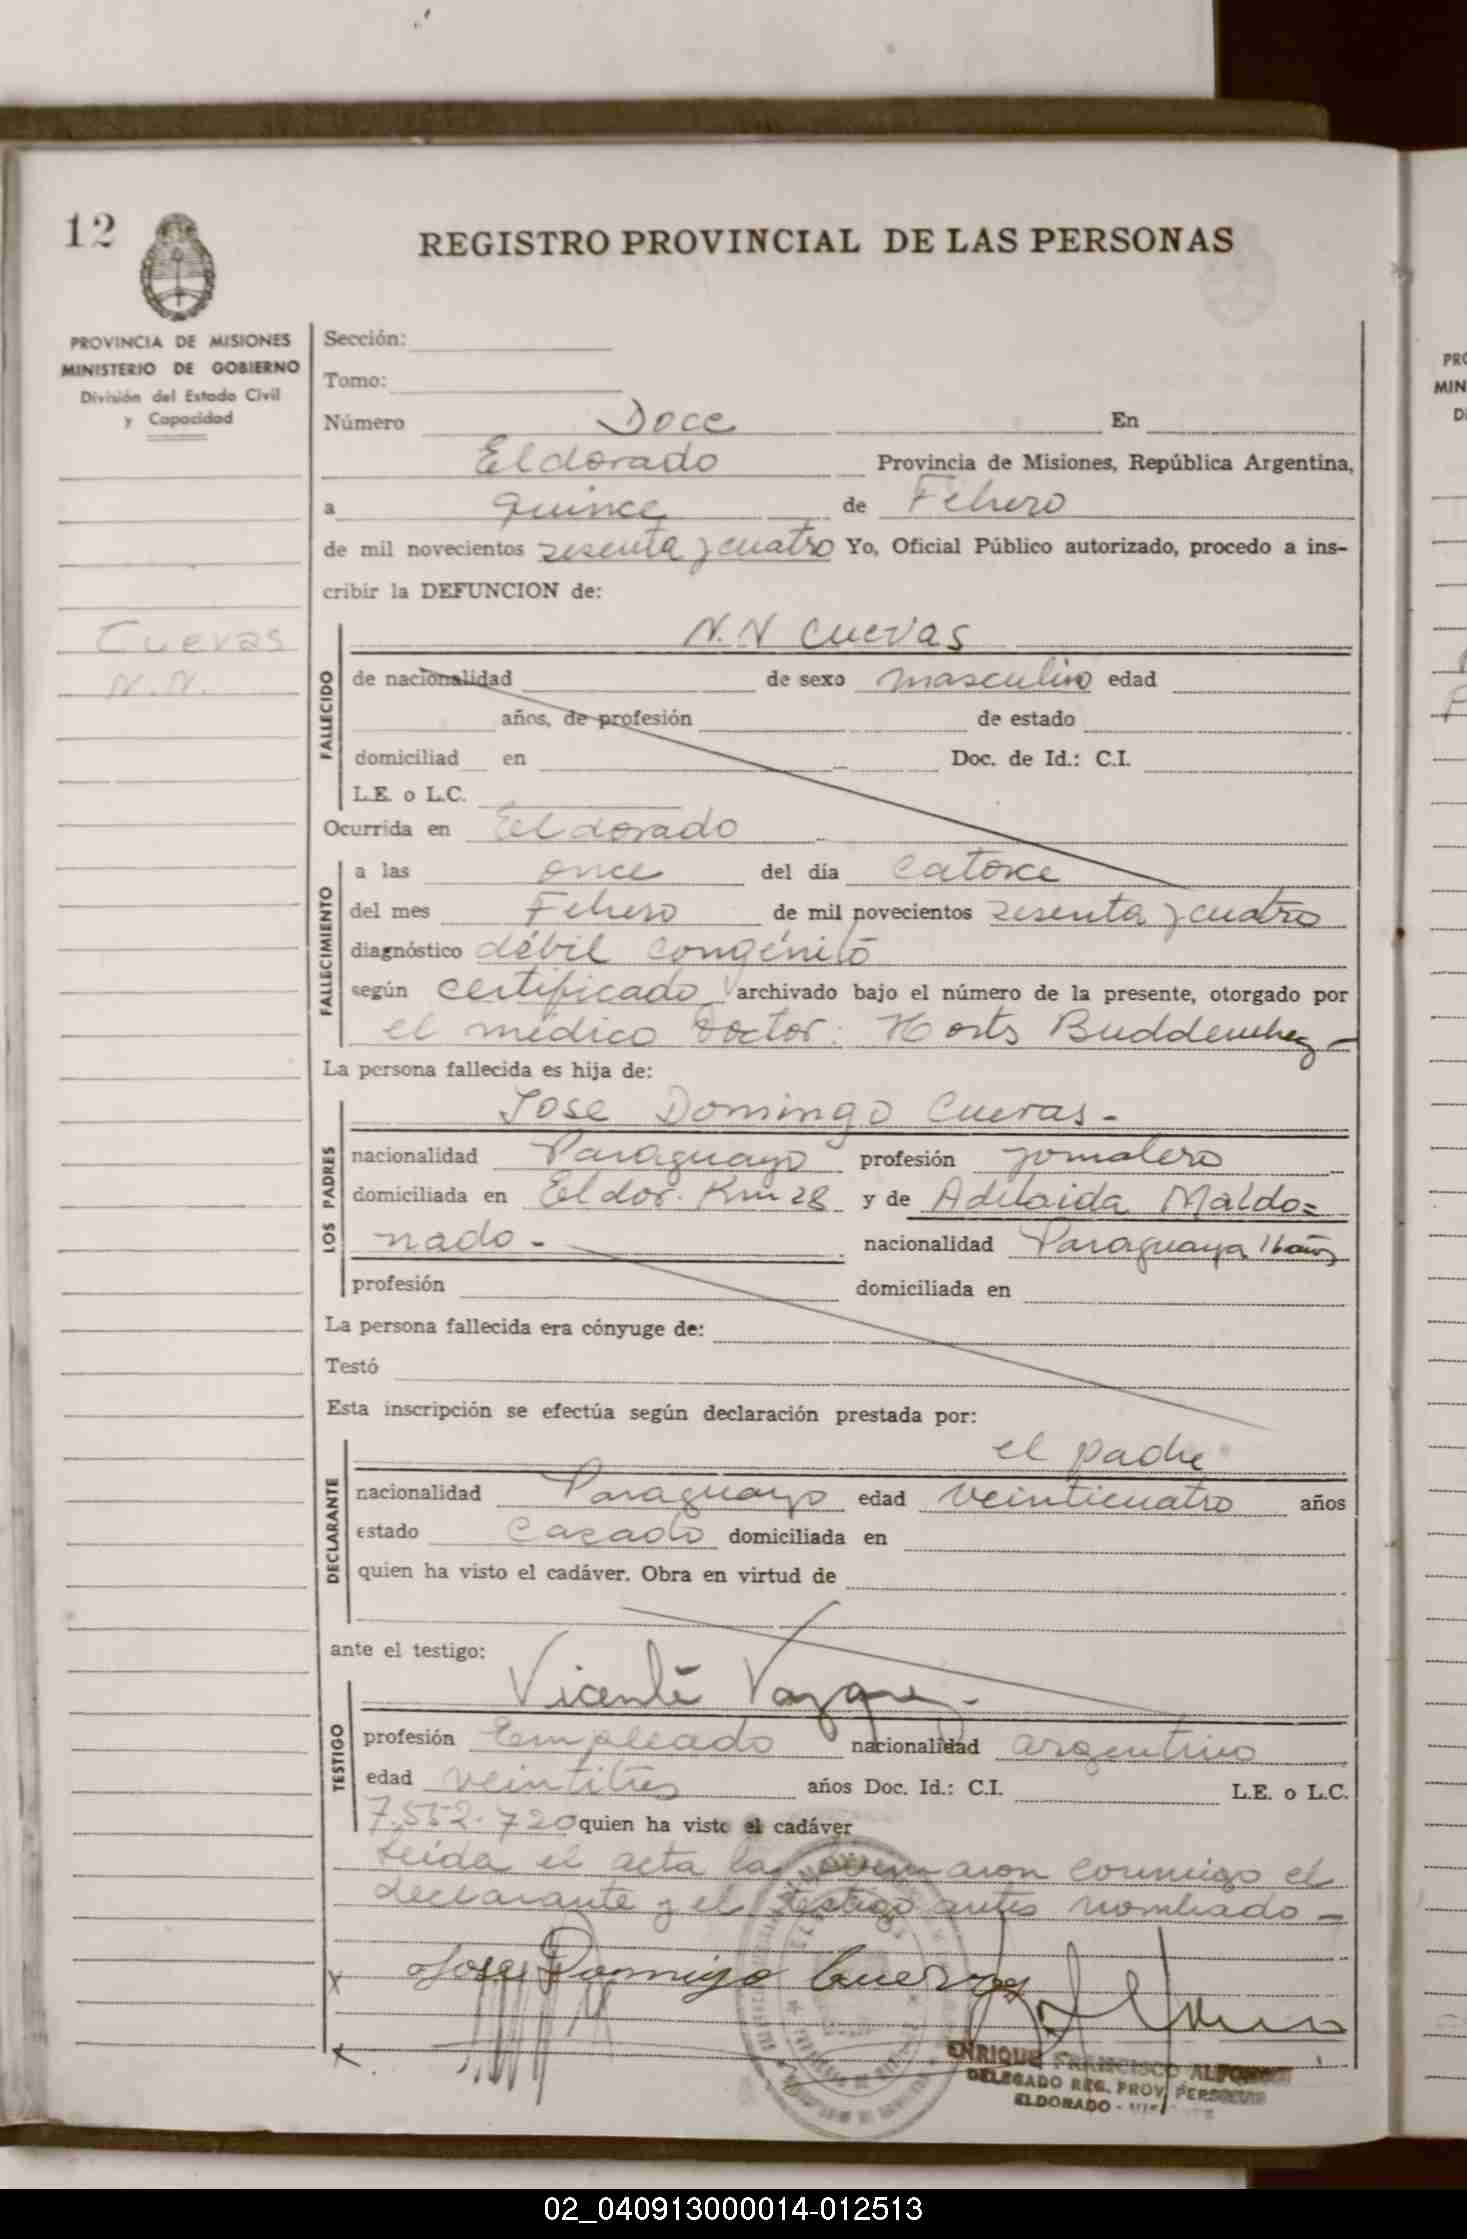 12
REGISTRO PROVINCIAL DE LAS PERSONAS
PROVINCIA DE MISIONES
MINISTERIO DE GOBIERNO
División del Estado Civil
y Capacidad
Cuevas
N.N.
Sección:
Tomo:
Número Doce En
Eldorado Provincia de Misiones, República Argentina,
a quince de Febrero
de mil novecientos sesenta y cuatro Yo, Oficial Público autorizado, procedo a ins-
cribir la DEFUNCION de:
N.N Cuevas
FALLECIDO
de nacionalidad de sexo masculino edad
años, de profesión de estado
domiciliad en Doc. de Id.: C.I.
L.E. o L.C.
Ocurrida en Eldorado
FALLECIMIENTO
a las once del día catorce
del mes Febrero de mil novecientos sesenta y cuatro
diagnóstico débil congénito
según certificado archivado bajo el número de la presente, otorgado por
el médico Doctor: Horts
La persona fallecida es hija de:
LOS PADRES
Jose Domingo Cuevas -
nacionalidad Paraguayo profesión jornalero
domiciliada en Eldor. Km 28 y de Adelaida Maldo=
nado - nacionalidad Paraguaya 16 años
profesión domiciliada en
La persona fallecida era cónyuge de:
Testó
Esta inscripción se efectúa según declaración prestada por:
DECLARANTE
el padre
nacionalidad Paraguayo edad veinticuatro años
estado casado domiciliada en
quien ha visto el cadáver. Obra en virtud de
ante el testigo:
TESTIGO
Vicente Vazquez -
profesión Empleado nacionalidad argentino
edad veintitres años Doc. Id.: C.I. L.E. o L.C.
7.552.720 quien ha visto el cadáver
Leida el acta la conmigo el
declarante y el testigo antes nombrado -
X Jose Domigo Cuevas
X
ENRIQUE FRANCISCO
DELEGADO REG. PROV. PERSONAS
ELDORADO -
PRO
MIN
Di
02_040913000014-012513